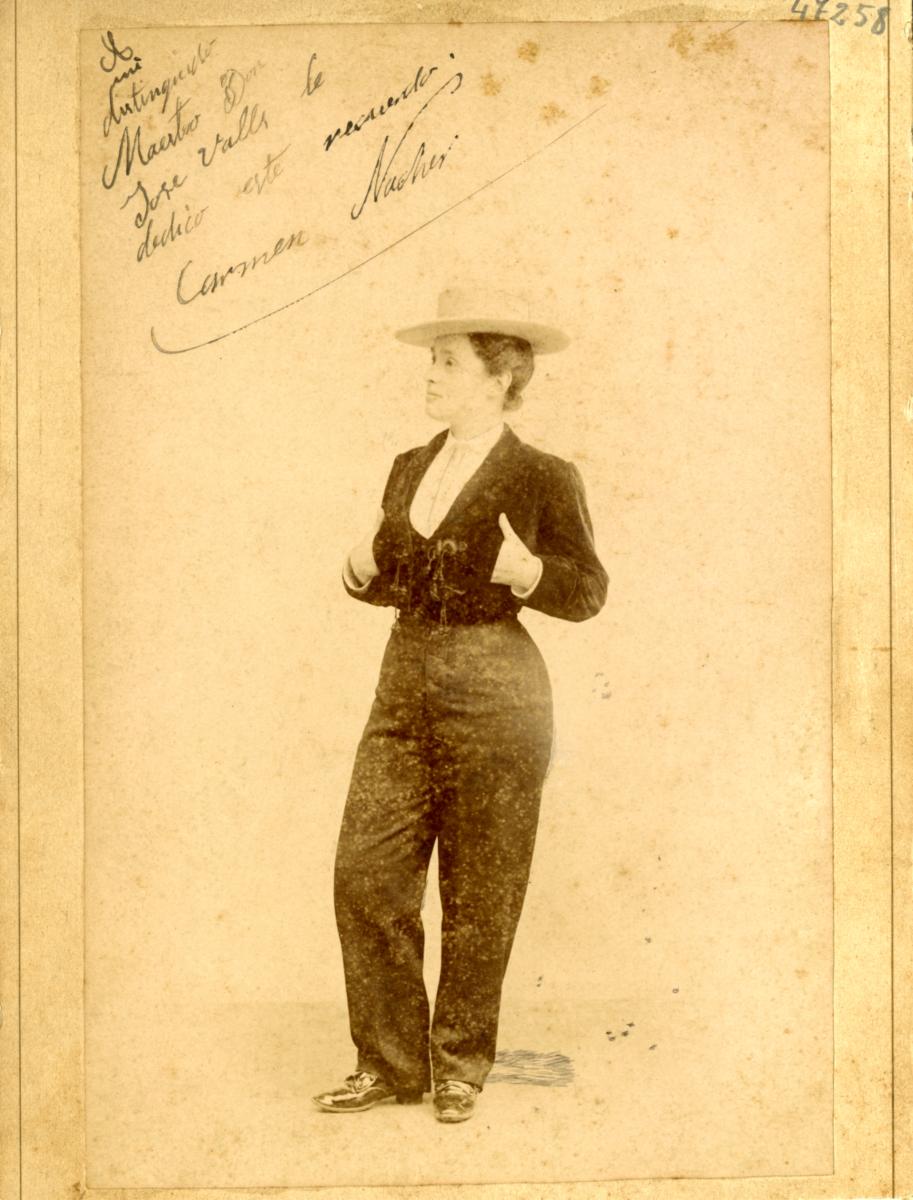 47258
A
mi
distinguido
Maestro Don
Jose Valls le
dedico este recuerdo.
Carmen Nacher